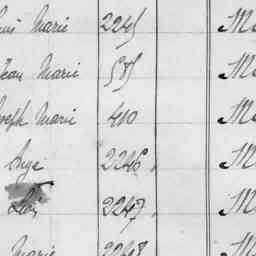 Marie 2245 M
Jean Marie 585 M
Joseph Marie 410 M
Ange 2246 M
2247 M
Marie 2248 M